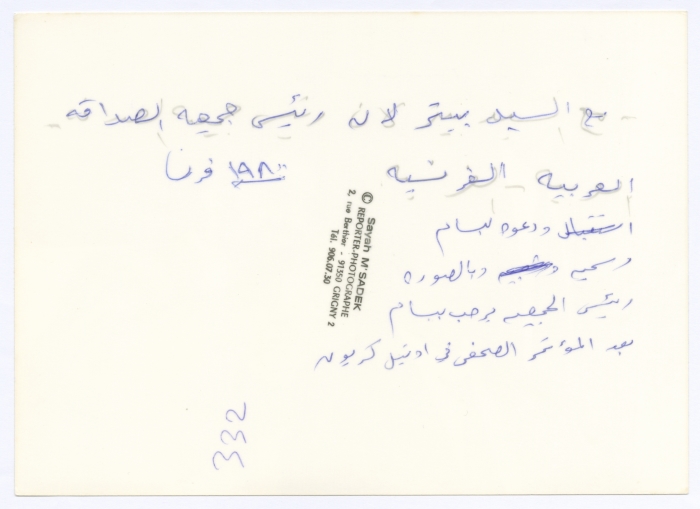 مع السيد بيتر لان رئيس جمعيه الصداقه
العربيه - الفرنسيه ١٩٨٠ فرنسا
استقبال ودعوه لبسام
رسميه وبالصوره
رئيس الجمعيه يرحب ببسام
بعد المؤتمر الصحفي في اوتيل كريون
© Sayah M'SADEK
REPORTER-PHOTOGRAPHE
2, rue Berthier - 91350 GRIGNY 2
Tél. 906.07.30
332